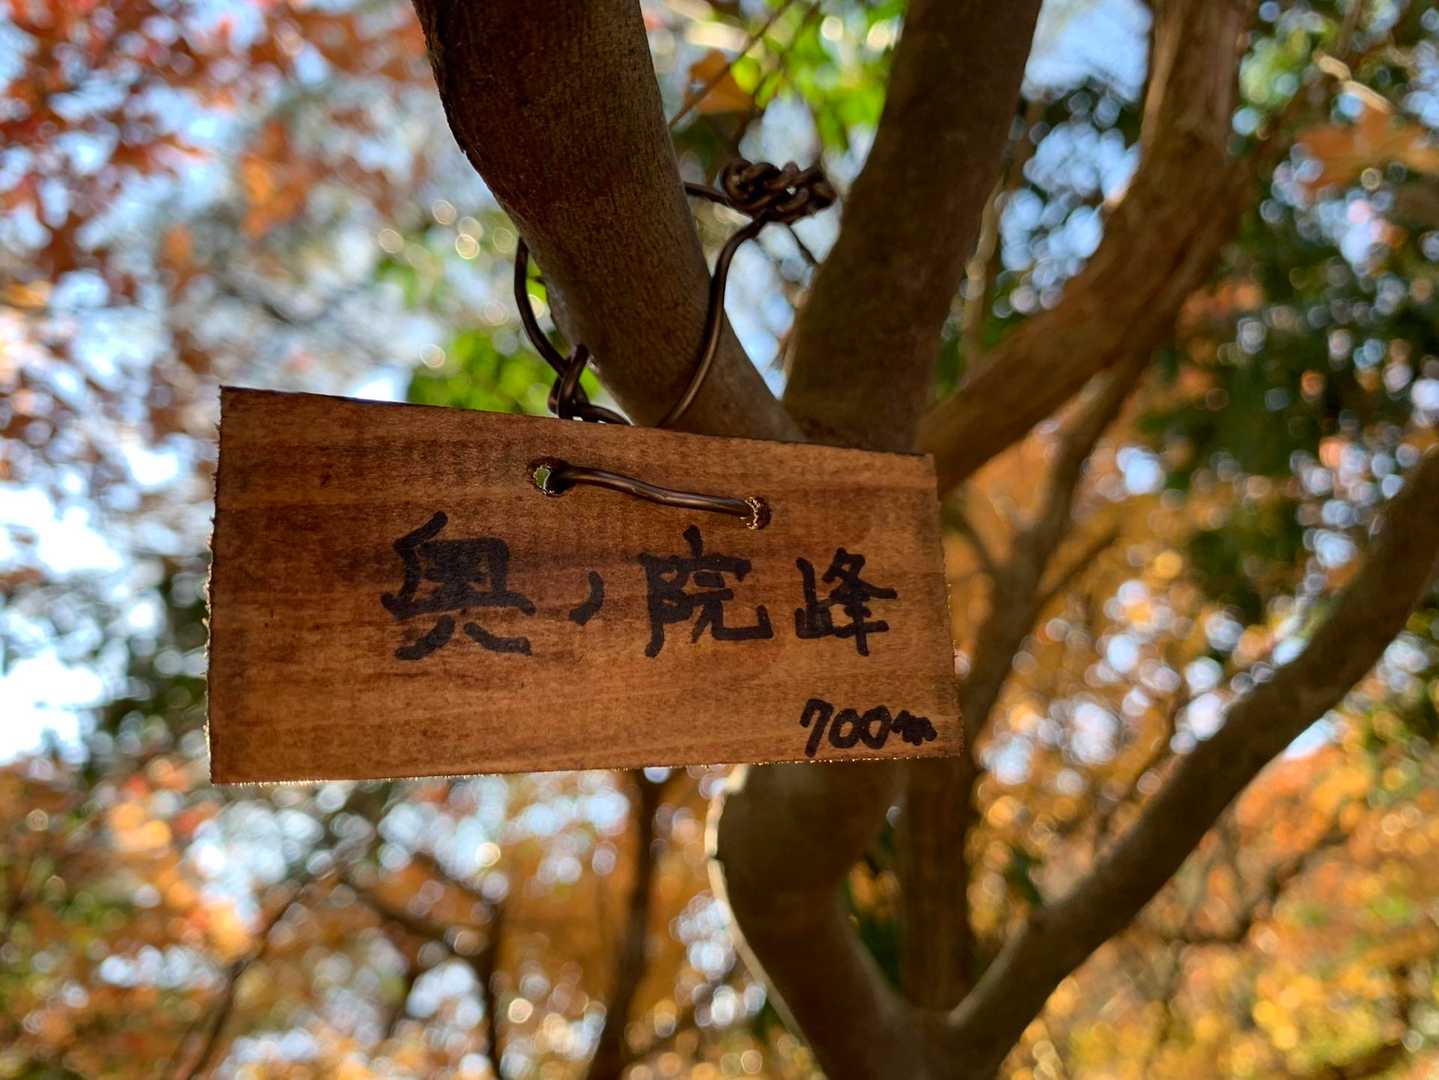 奥ノ院峰
700m